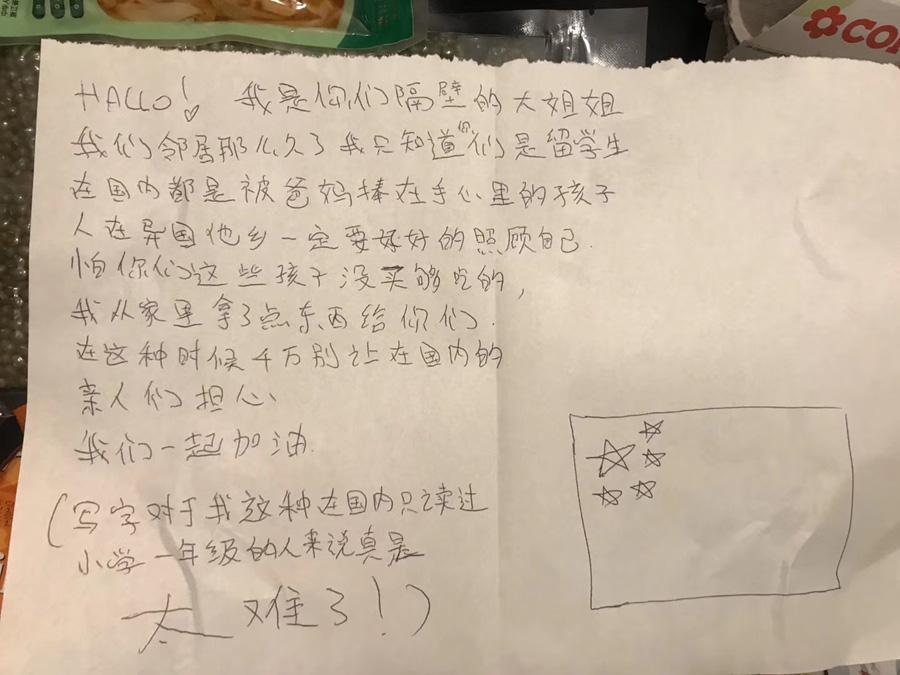 HALLO! 我是你们隔壁的大姐姐
我们邻居那么久了我只知道你们是留学生
在国内都是被爸妈捧在手心里的孩子
人在异国他乡一定要好好的照顾自己.
怕你们这些孩子没买够吃的,
我从家里拿了点东西给你们.
在这种时候千万别让在国内的
亲人们担心
我们一起加油.
(写字对于我这种在国内只读过
小学一年级的人来说真是
太难了!)